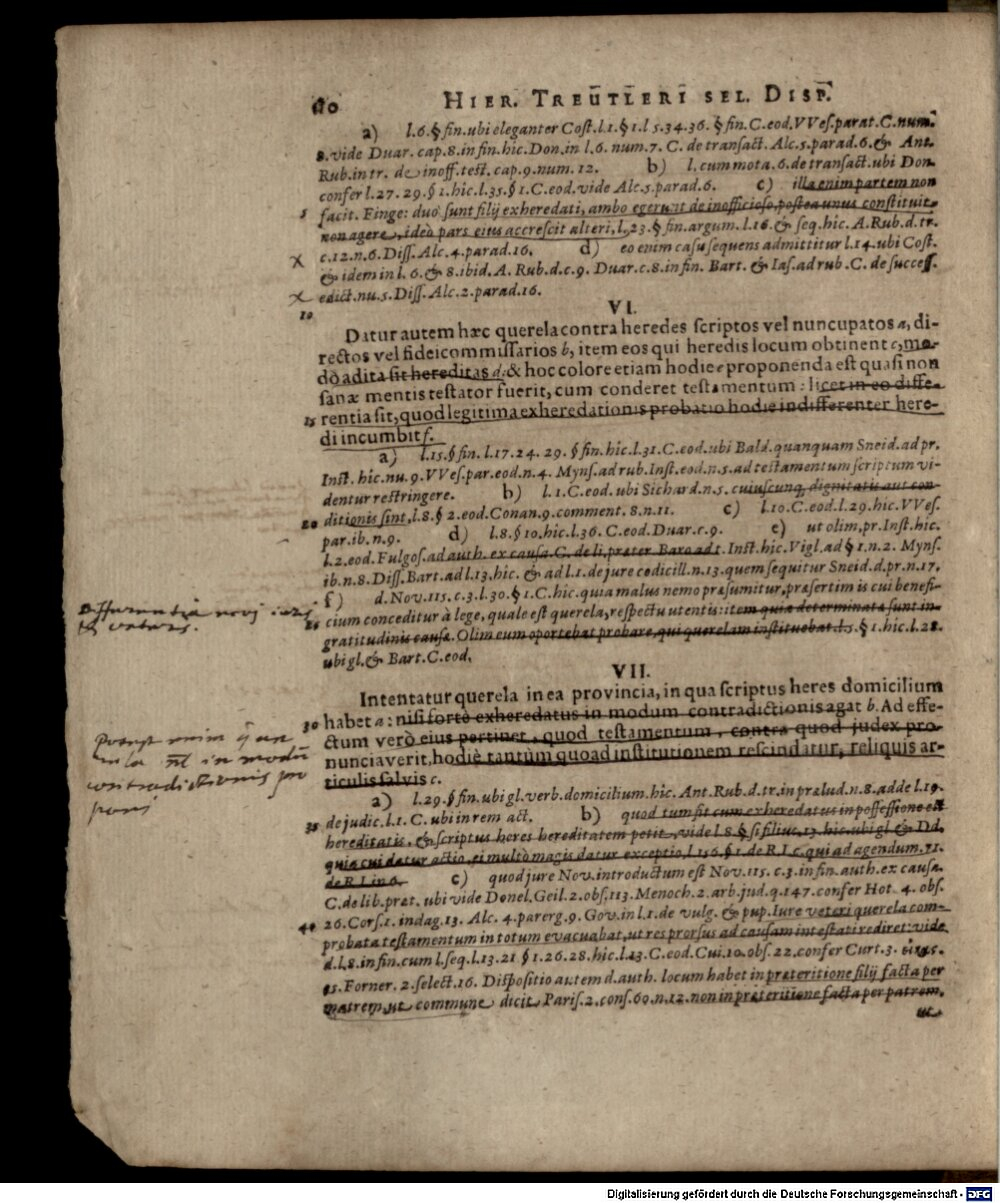 HIER. TREUTLERI SEL. DISP.
a) l.6.§ fin.ubi eleganter Cost.l.1.§ 1.l 5.34.36.§ fin.C.eod.VVes.parat.C.num.
8.vide Duar.cap.8.in fin.hic.Don.in l.6.num.7. C. de transact. Alc.5.parad.6.& Ant.
Rub.in tr. de inoff.test.cap.9.num.12. b) l.cum mota.6.de transact.ubi Don.
confer l.27.29.§ 1.hic.l.35.§ 1.C.eod.vide Alc.5.parad.6. c) illa enim partem non
5 facit. Finge: duo sunt filij exheredati, ambo egerunt de inofficioso, postea unus constituit
non agere, ideò pars eius accrescit alteri, l.23.§ fin.argum.l.16.& seq.hic.A.Rub.d.tr.
c.12.n.6.Diss.Alc.4.parad.16. d) eo enim casu sequens admittitur l.14.ubi Cost.
& idem in l.6.& 8.ibid.A.Rub.d.c.9. Duar.c.8.in fin. Bart. & Ias.ad rub.C.de success.
edict.nu.5.Diss.Alc.2.parad.16.
10 VI.
Datur autem hæc querela contra heredes scriptos vel nuncupatos a, di-
rectos vel fideicommissarios b, item eos qui heredis locum obtinent c, mo-
dò adita sit hereditas d: & hoc colore etiam hodie e proponenda est quasi non
sanæ mentis testator fuerit, cum conderet testamentum: licet in eo diffe-
15 rentia sit, quod legitima exheredationis probatio hodie indifferenter here-
di incumbit f.
a) l.15.§ fin.l.17.24.29.§ fin.hic.l.31.C.eod.ubi Bald.quanquam Sneid.ad pr.
Inst.hic.nu.9.VVes.par.eod.n.4. Myns.ad rub.Inst.eod.n.5.ad testamentum scriptum vi-
dentur restringere. b) l.1.C.eod.ubi Sichard.n.5.cuiuscunq, dignitatis aut con-
20 ditionis sint,l.8.§ 2.eod.Conan.9.comment.8.n.11. c) l.10.C.eod.l.29.hic.VVes.
par.ib.n.9. d) l.8.§ 10.hic.l.36.C.eod.Duar.c.9. e) ut olim,pr.Inst.hic.
l.2.eod.Fulgos.ad auth.ex causa.C.de li.præter.Baro ad t.Inst.hic.Vigl.ad § 1.n.2. Myns.
ib.n.8.Diss.Bart.ad l.13.hic. & ad l.1.de jure codicill.n.13.quem sequitur Sneid.d.pr.n.17.
f) d.Nov.115.c.3.l.30.§ 1.C.hic.quia malus nemo præsumitur,præsertim is cui benefi-
Differentia novi juris
& veteris.
25 cium conceditur à lege, quale est querela, respectu utentis: item quia determinata sunt in-
gratitudinis causæ. Olim eum oportebat probare, qui querelam instituebat.l.5.§ 1.hic.l.28.
ubi gl.& Bart.C.eod.
VII.
Intentatur querela in ea provincia, in qua scriptus heres domicilium
30 habet a: nisi fortè exheredatus in modum contradictionis agat b. Ad effe-
ctum verò eius pertinet, quod testamentum, contra quod judex pro
nunciaverit, hodiè tantùm quoad institutionem rescindatur, reliquis ar-
ticulis salvis c.
in modū
contradictionis pro
poni
a) l.29.§ fin.ubi gl.verb.domicilium.hic. Ant.Rub.d.tr.in prælud.n.8.adde l.19.
35 de judic.l.1.C.ubi in rem act. b) quod tum fit cum exheredatus in possessione est
hereditatis, & scriptus heres hereditatem petit, vide l.8.§ si filius.13.hic.ubi gl.& Dd.
quia cui datur actio, ei multò magis datur exceptio,l.156.§ 1.de R.I.c.qui ad agendum.71.
de R.I.in 6. c) quod jure Nov.introductum est Nov.115.c.3.in fin.auth.ex causa.
C.de lib.præt.ubi vide Donel.Geil.2.obs.113.Menoch.2.arb.jud.q.147.confer Hot.4.obs.
40 26.Cors.1.indag.13. Alc.4.parerg.9.Gov.in l.1.de vulg. & pup.Iure veteri querela com-
probata testamentum in totum evacuabat, ut res prorsus ad causam intestati rediret: vide
d.l.8.in fin.cum l.seq.l.13.21 § 1.26.28.hic.l.13.C.eod.Cui.10.obs.22.confer Curt.3.
Forner.2.select.16. Dispositio autem d.auth. locum habet in præteritione filij facta per
matrem, ut commune dicit Paris.2.cons.60.n.12.non in præteritione facta per patrem,
ut
Digitalisierung gefördert durch die Deutsche Forschungsgemeinschaft - DFG